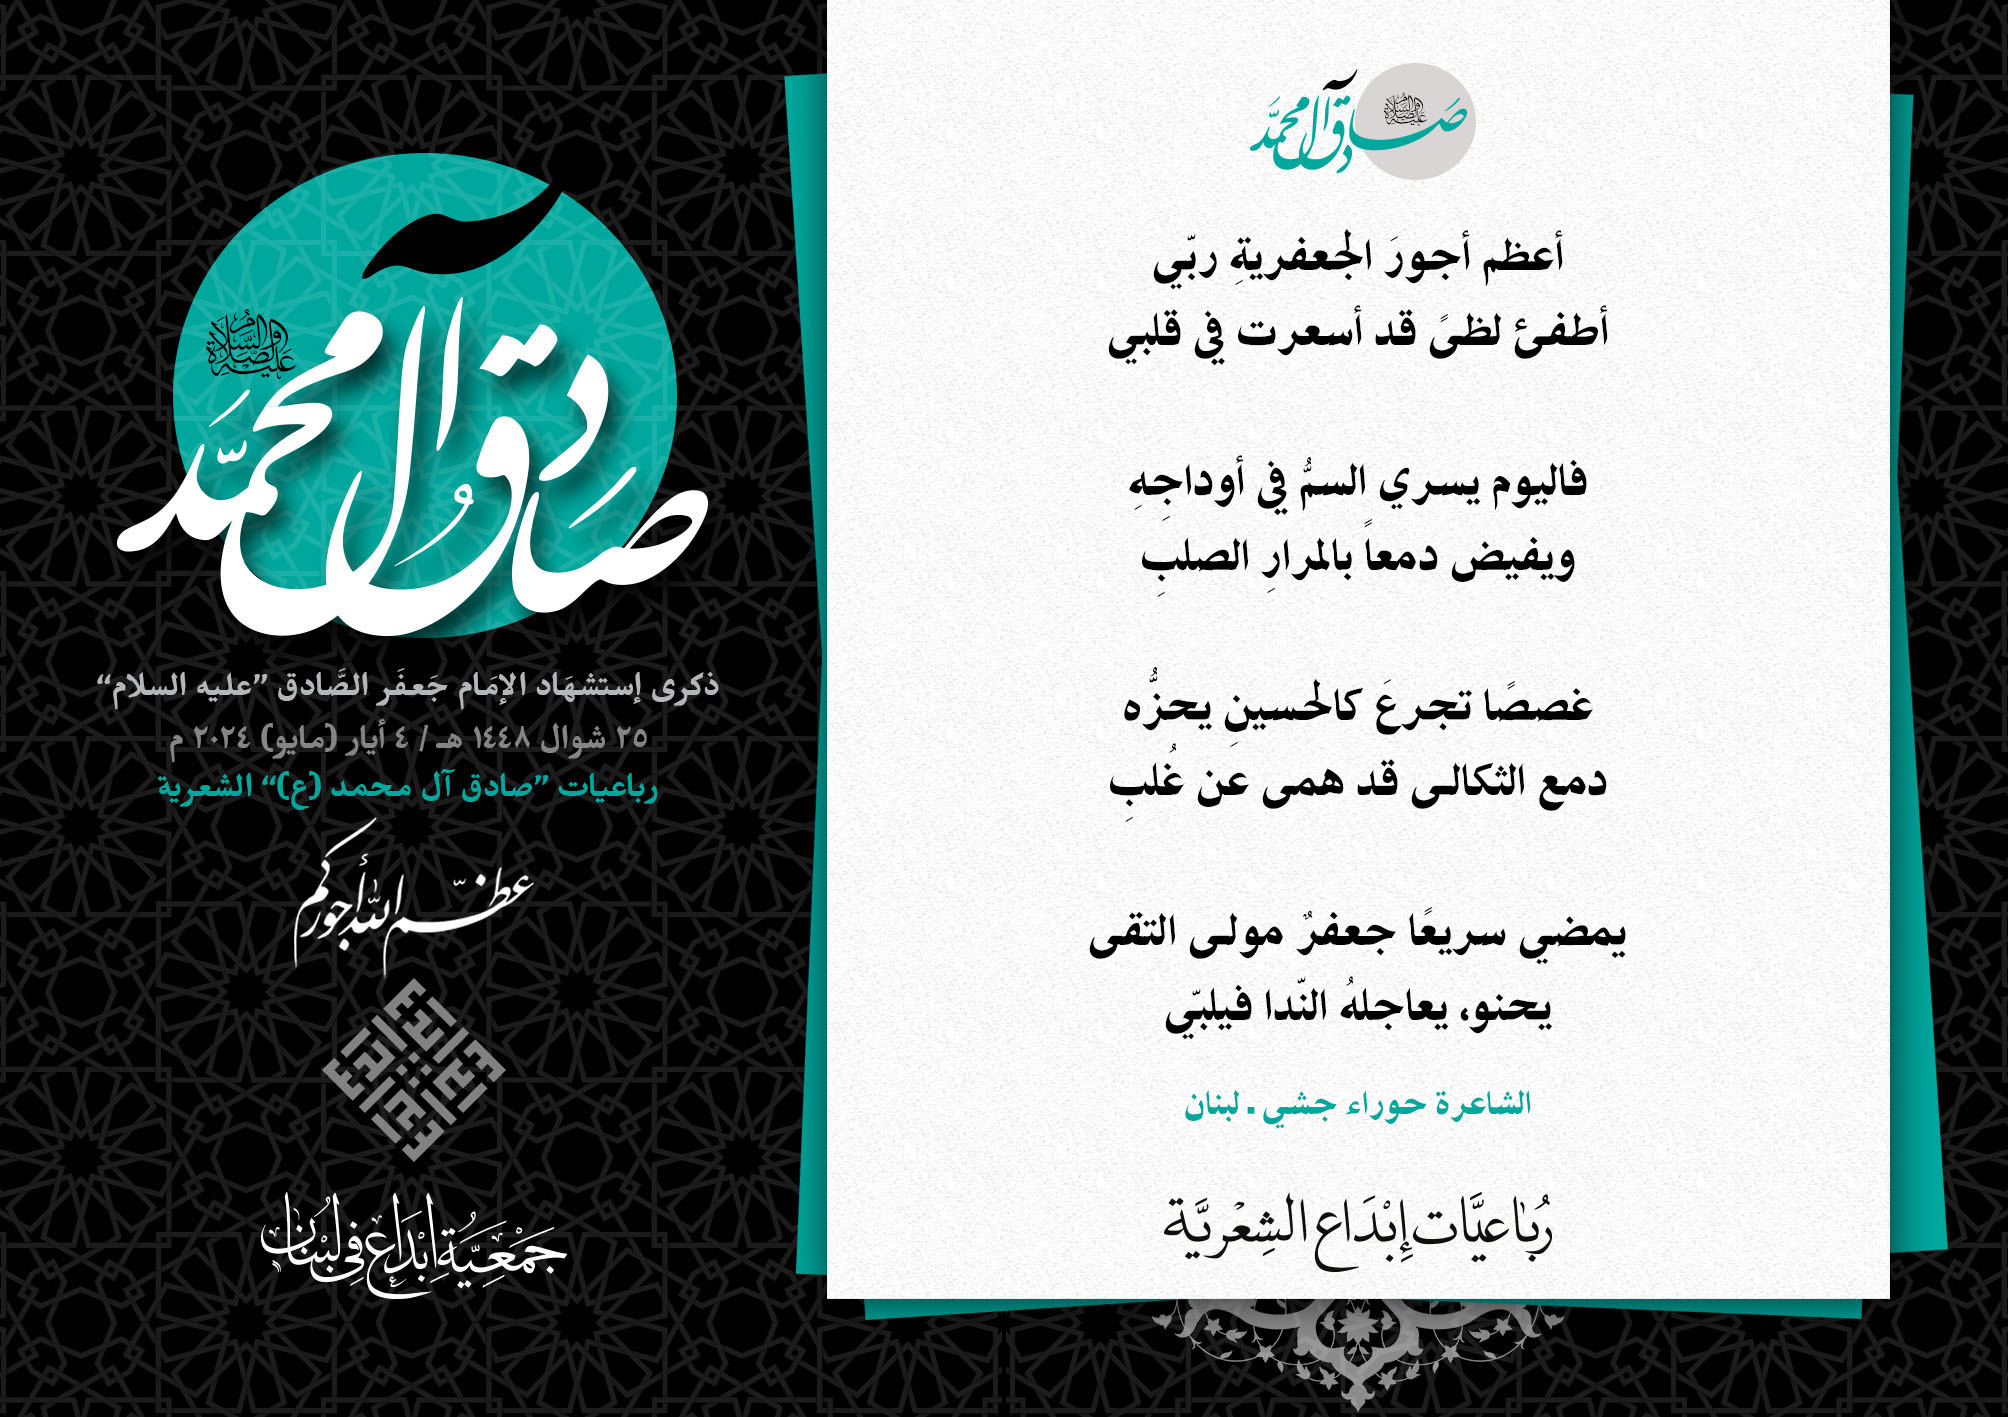 صادق آل محمد
عليه الصلاة والسلام
ذكرى إستشهَاد الإمَام جَعفَر الصَّادق ”عليه السلام“
٢٥ شوال ١٤٤٨ هـ / ٤ أيار (مايو) ٢٠٢٤ م
رباعيات ”صادق آل محمد (ع)“ الشعرية
عظّم الله أجوركم
إبداع
جَمْعِيَّةُ إِبْدَاع فِي لُبْنَان
صادق آل محمد
عليه الصلاة والسلام
أعظم أجورَ الجعفريةِ ربّي
أطفئ لظىً قد أسعرت في قلبي
فاليوم يسري السمُّ في أوداجِهِ
ويفيض دمعاً بالمرارِ الصلبِ
غصصًا تجرعَ كالحسينِ يحزُّه
دمع الثكالى قد همى عن غُلبِ
يمضي سريعًا جعفرٌ مولى التقى
يحنو، يعاجلهُ النّدا فيلبّي
الشاعرة حوراء جشي ـ لبنان
رُبَاعيَّات إِبْدَاع الشِعْريَّة